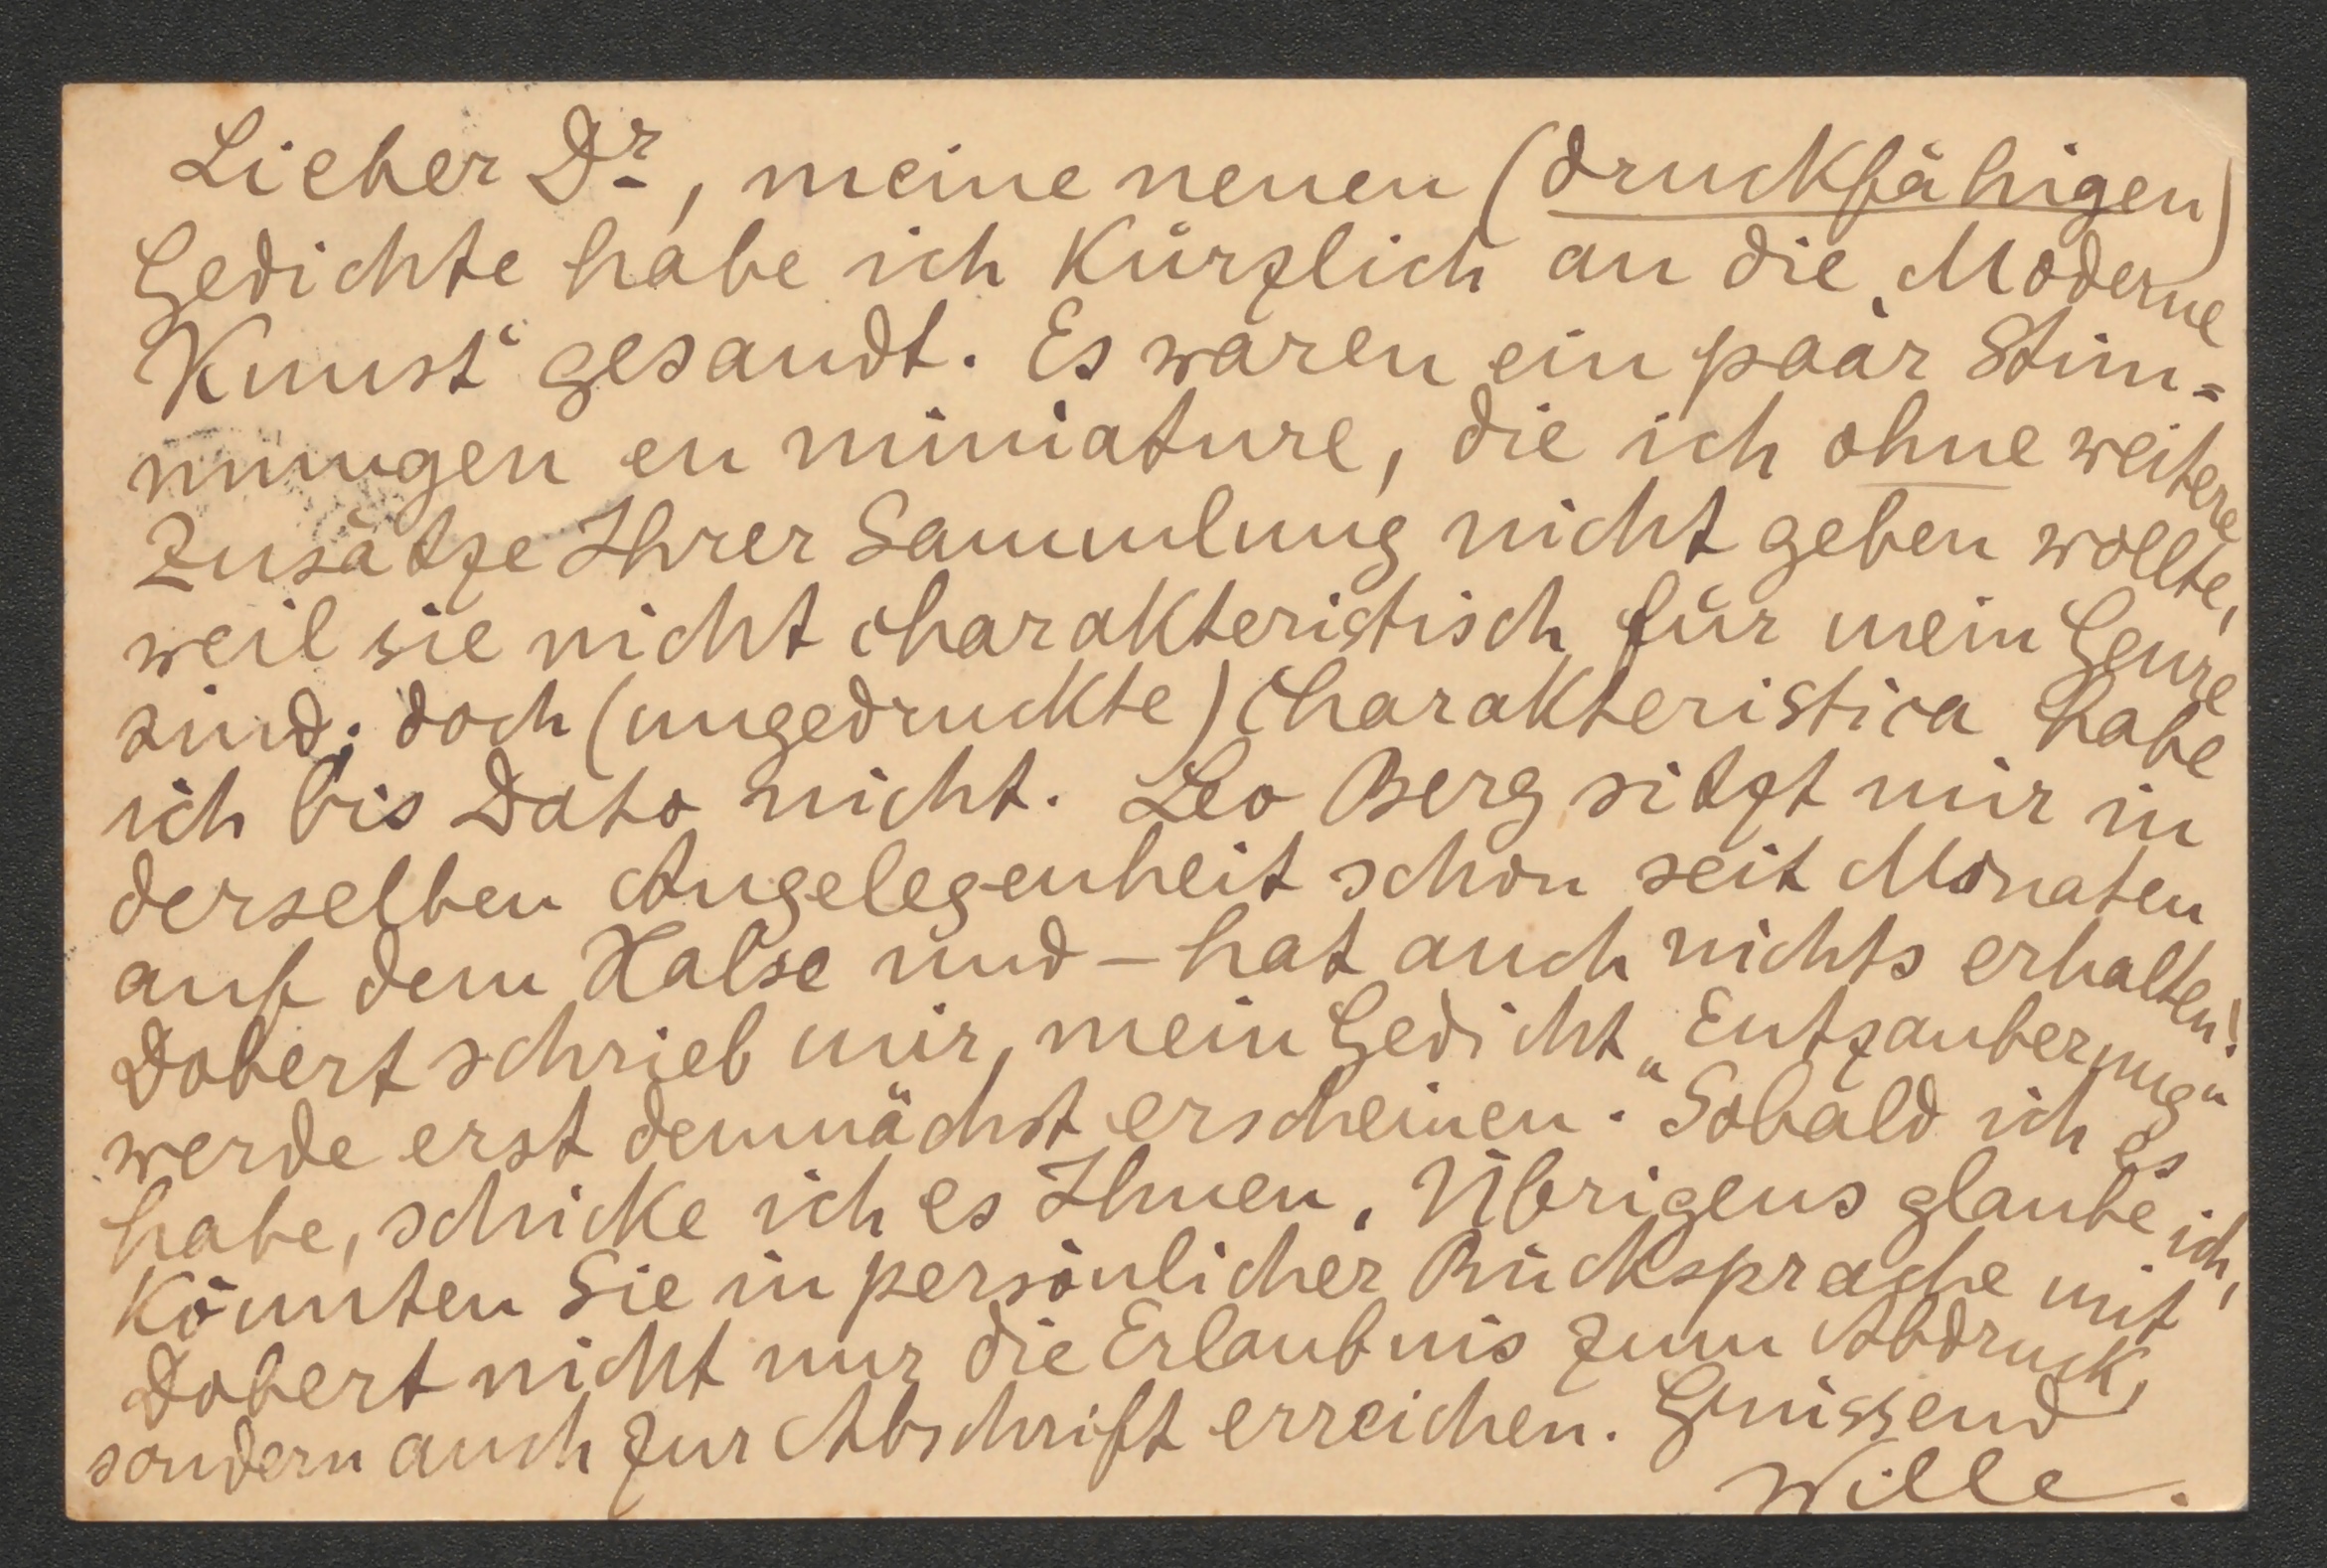 Lieber Dr, meine neuen (druckfähigen)
Gedichte habe ich kürzlich an die „Moderne
Kunst“ gesandt. Es waren ein paar Stim=
mungen en miniature, die ich ohne weitere
Zusätze Ihrer Sammlung nicht geben wollte,
weil sie nicht charakteristisch für mein Genre
sind; doch (ungedruckte) Charakteristica habe
ich bis Dato nicht. Leo Berg sitzt mir in
derselben Angelegenheit schon seit Monaten
auf dem Halse und – hat auch nichts erhalten!
Dobert schrieb mir, mein Gedicht „Entzauberung“
werde erst demnächst erscheinen. Sobald ich es
habe, schicke ich es Ihnen. Übrigens glaube ich,
könnten Sie in persönlicher Rücksprache mit
Dobert nicht nur die Erlaubnis zum Abdruck,
sondern auch zur Abschrift erreichen. Grüssend
Wille.